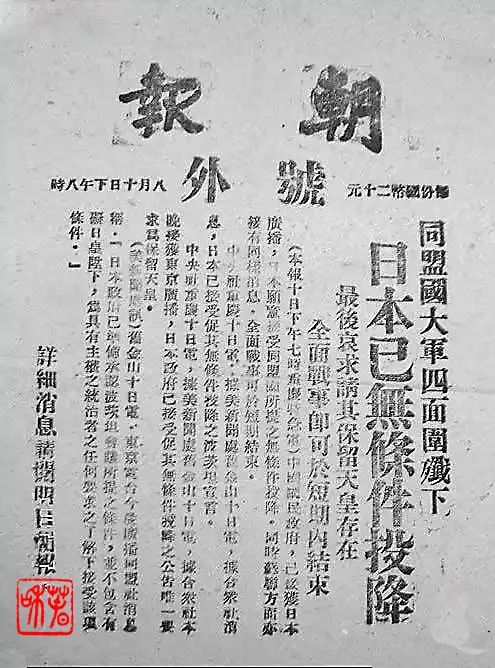 朝報
號外
每份國幣二十元
八月十日下午八時
同盟國大軍四面圍殲下
日本已無條件投降
最後哀求請其保留天皇存在
全面戰事即可於短期內結束
(本報十日下午七時重慶收音電)中國國民政府,已接獲日本
廣播,日本願意接受同盟國所提之無條件投降。同時蘇聯方面亦
接有同樣消息。全面戰事可於短期結束。
中央社重慶十日電:據美新聞處舊金山十日電,據合衆社消
息,日本已接受促其無條件投降之波茨坦宣言。
中央社重慶十日電,據美新聞處舊金山十日電,據合衆社本
晚接獲東京廣播,日本政府已接受促其無條件投降之公告唯一要
求為保留天皇。
舊金山十日電:東京電台今晚廣播同盟社消息
稱:「日本政府已準備承認波茨坦會議所提之條件,並不包含有
礙日皇陛下,為具有主權之統治者之任何要求之了解下接受該項
條件。」
詳細消息請閱明日朝報